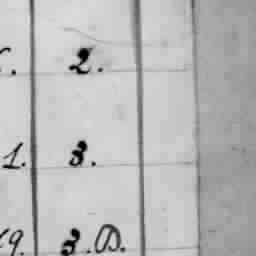 2.
1. 3.
9. 3. D.